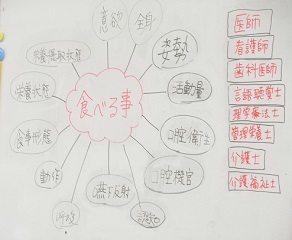 食べる事
意欲
全身
姿勢
活動量
口腔衛生
口腔機官
認知
嚥下反射
呼吸
動作
食事形態
栄養状態
栄養摂取状態
医師
看護師
歯科医師
言語聴覚士
理学療法士
管理栄養士
介護士
介護福祉士